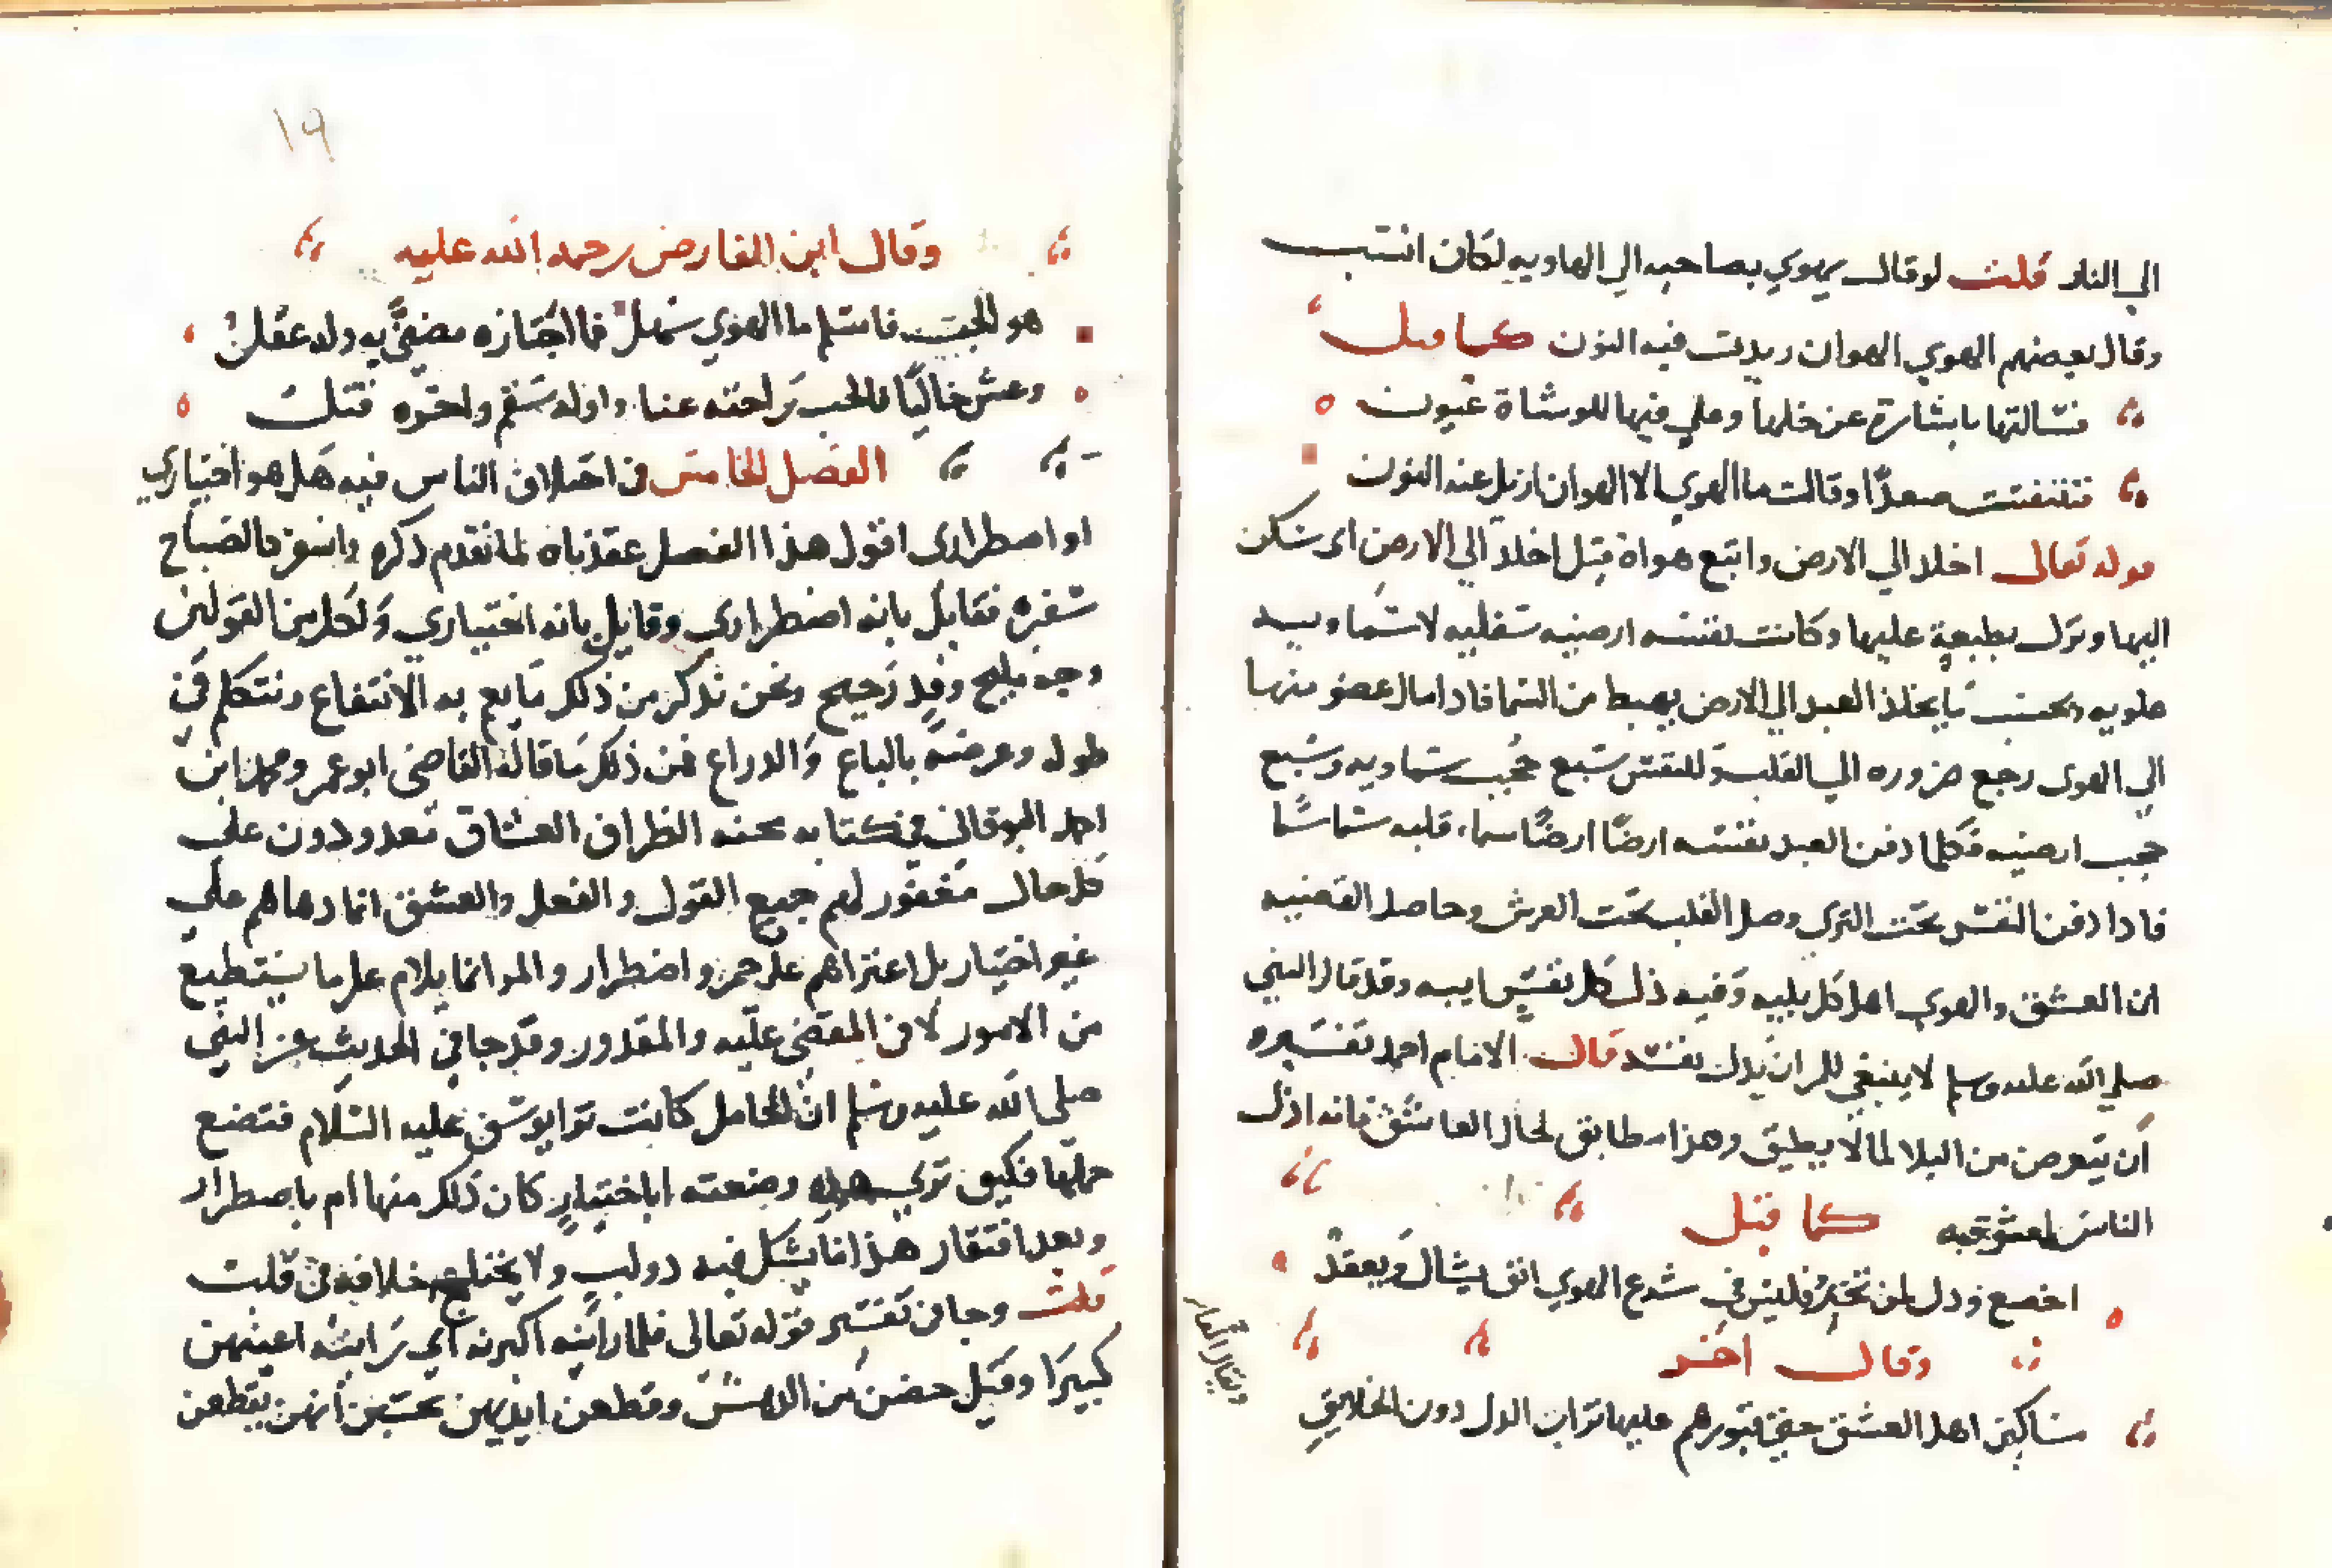 الي النار قلت لو قال يهوي بصاحبه الي الهاويه لكان انسب
وقال بعضهم الهوي الهوان زيدت فيه النون كما قيل
فسالتها باشارة عن خلها وعلي فيها للوشاة عيون
فتنفست صعدًا وقالت ما الهوي الا الهوان ازيل عنه النون
قوله تعالى اخلد الي الارض واتبع هواه قيل اخلد الي الارض اى سكن
اليها ونزل بطبعه عليها وكانت نفسه ارضيه سفليه لا سماويه
علويه وبحسب ما يخلد العبد الي الارض يهبط من السما فاذا مال عضو منها
الي الهوى رجع ضروره الي القلب وللنفس سبع حجب سماويه وسبع
حجب ارضيه فكلما دفن العبد نفسه ارضًا ارضًا سما قلبه سما سًما
فاذا دفن النفس تحت الثري وصل القلب تحت العرش وحاصل القضيه
ان العشق والهوي اصل كل بليه وفيه ذل كل نفس ابيه وقد قال النبي
صلي الله عليه وسلم لا ينبغي للمر ان يذل نفسه قال الامام احمد تفسيره
ان يتعرض من البلا لما لا يطيق وهذا مطابق لحال العاشق فانه اذل
الناس لمعشوقه كما قيل
اخضع وذل لمن تحب فليس في شرع الهوي انف يشال ويعقد
وقال اخر
مساكين اهل العشق حتي قبورهم عليها تراب الذل دون الخلايق
١٩
وقال ابن الفارض رحمه الله عليه
هو الحب فاسلم ما الهوي سهل فما اختاره مضني به وله عقل
وعش خاليًا فالحب راحته عنا واوله سقم واخره قتل
الفصل الخامس في اختلاف الناس فيه هل هو اختياري
او اضطراري اقول هذا الفصل عقدناه لما تقدم ذكره واسفر كالصباح
سفره فقايل بانه اضطراري وقايل بانه اختياري ولكل من القولين
وجه مليح وقد رجيح ونحن نذكر من ذلك ما يعم به الانتفاع ونتكلم في
طوله وعرضه بالباع والذراع فمن ذلك ما قاله القاضي ابو عمر ومحمد ابن
احمد النوقاني في كتابه محنه الظراف العشاق معذورون علي
كل حال مغفور لهم جميع القول والفعل والعشق انما دهاهم علي
غير اختيار بل اعتراهم علي جبر واضطرار والمر انما يلام علي ما يستطيع
من الامور لا في المقضي عليه والمقدور وقد جا في الحديث عن النبي
صلي الله عليه وسلم ان الحامل كانت ترا يوسف عليه السلام فتضع
حملها فكيف تري هذه وضعته اباختيار كان ذلك منها ام باضطرار
وبعد افتقار هذا ما يشكل فيه ذو لب ولا يختلج خلافه في قلب
قلت وجا في تفسير قوله تعالى فلما راينه اكبرنه اي راينه اعينهن
كبيرًا وقيل حضن من الدهش وقطعن ايديهن بحسبن انهن يقطعن